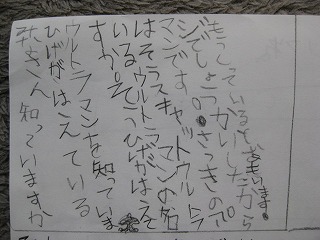 みなさん知っていますか
ひげがはえている
ウルトラマンを知っていま
すか。そ ひげがはえ
いるウルトラマンの名
はそラスキャットウルトラ
マンです。さっきのポ
ジでしょうかいしたから
もうしっているとおもいます。